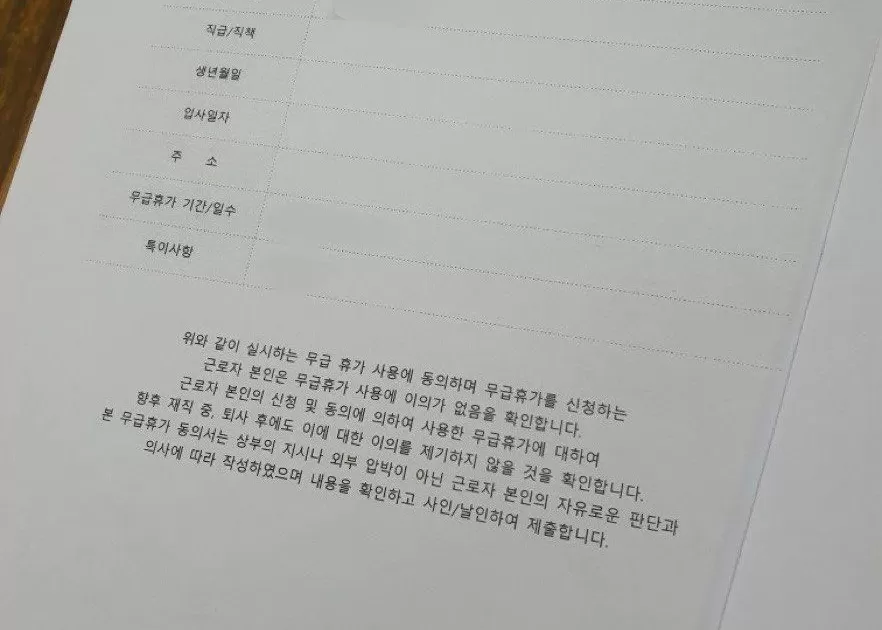 직급/직책
생년월일
입사일자
주 소
무급휴가 기간/일수
특이사항
위와 같이 실시하는 무급 휴가 사용에 동의하며 무급휴가를 신청하는
근로자 본인은 무급휴가 사용에 이의가 없음을 확인합니다.
근로자 본인의 신청 및 동의에 의하여 사용한 무급휴가에 대하여
향후 재직 중, 퇴사 후에도 이에 대한 이의를 제기하지 않을 것을 확인합니다.
본 무급휴가 동의서는 상부의 지시나 외부 압박이 아닌 근로자 본인의 자유로운 판단과
의사에 따라 작성하였으며 내용을 확인하고 사인/날인하여 제출합니다.